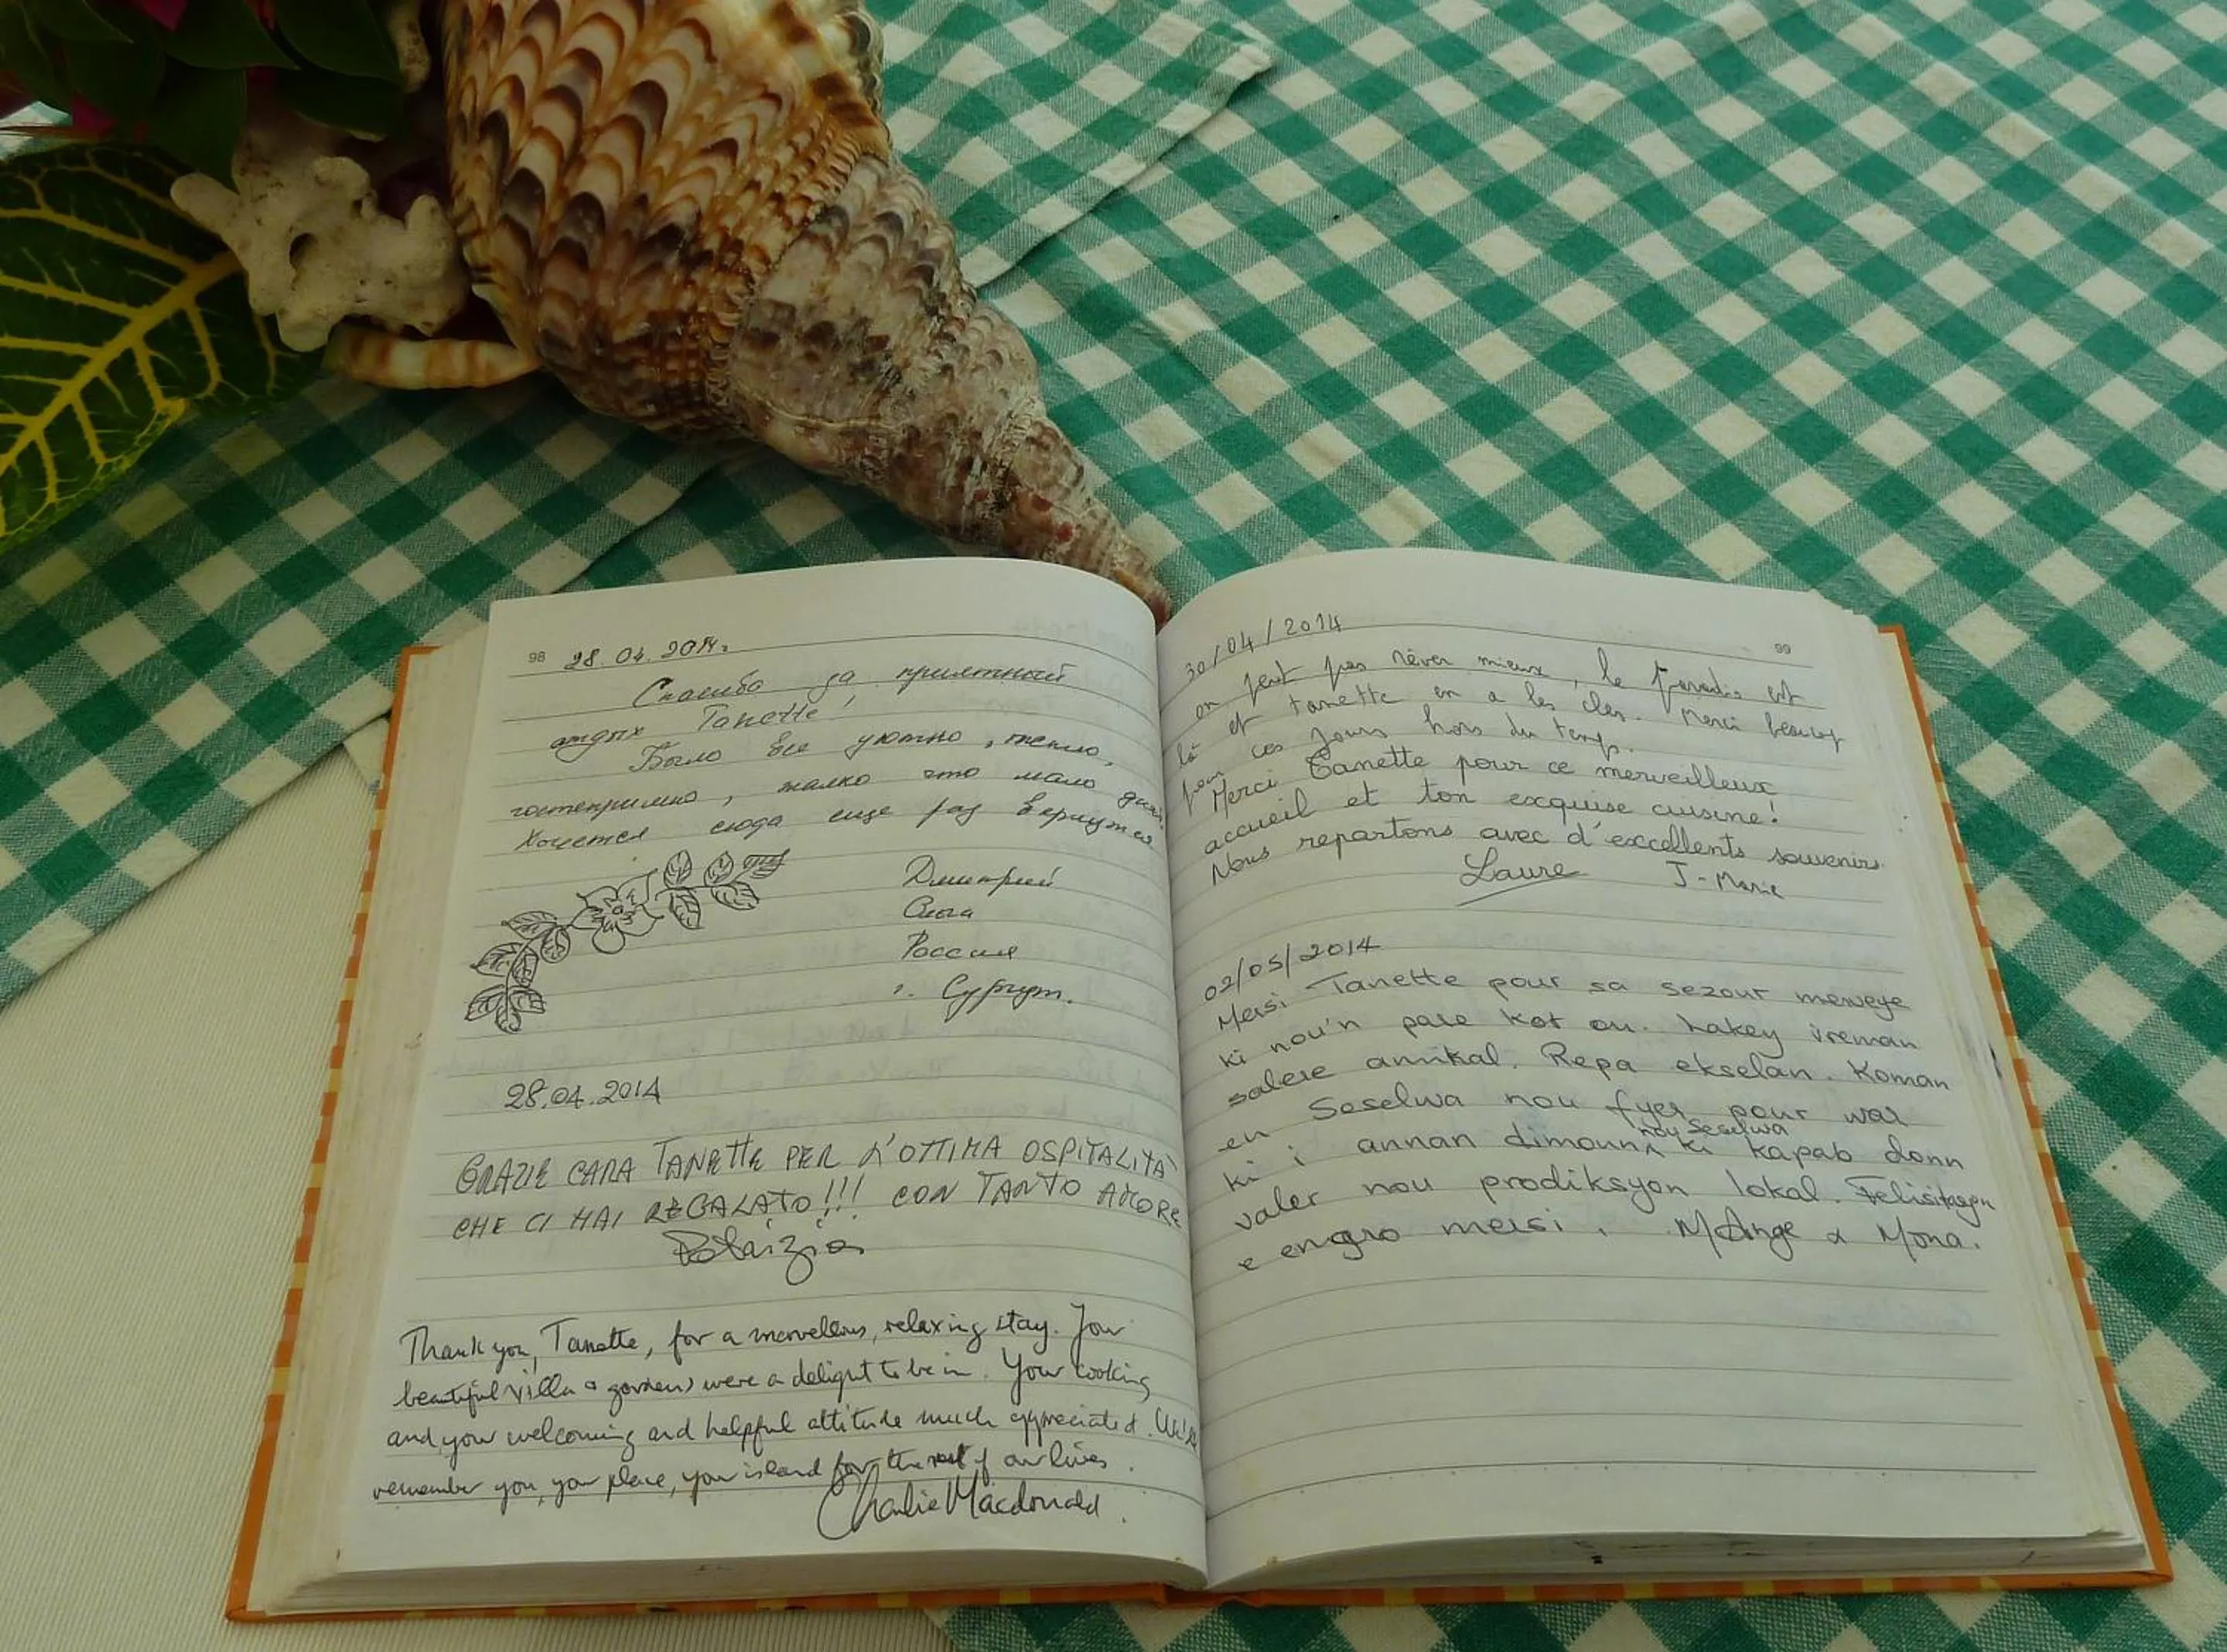 98
28.04.2014г.
Спасибо за приятный
отдых Tanette!
Было все уютно, тепло,
гостеприимно, жалко что мало дней.
Хочется сюда еще раз вернуться
Дмитрий
Ольга
Россия
г. Сургут.
28.04.2014
GRAZIE CARA TANETTE PER L'OTTIMA OSPITALITÀ
CHE CI HAI REGALATO!!! CON TANTO AMORE
Thank you, Tanette, for a marvellous, relaxing stay. Your
beautiful villa & gardens were a delight to be in. Your cooking
and your welcoming and helpful attitude much appreciated. We'll
remember you, your place, your island for the rest of our lives.
Charlie Macdonald.
99
30/04/2014
on peut pas rêver mieux, le paradis est
là et tanette en a les clés. Merci beaucoup
pour ces jours hors du temps.
Merci Tanette pour ce merveilleux
accueil et ton exquise cuisine!
Nous repartons avec d'excellents souvenirs.
Laure J-Marie
02/05/2014
Mersi Tanette pour sa sezour merveye
ki nou'n pase kot ou. Lakey vreman
salere annikal. Repa ekselan. Koman
en Seselwa nou fyer pour war
ki i annan dimoun nou Seselwa ki kapab donn
valer nou prodiksyon lokal. Felisitasyon
e engro mersi. MAnge & Mona.